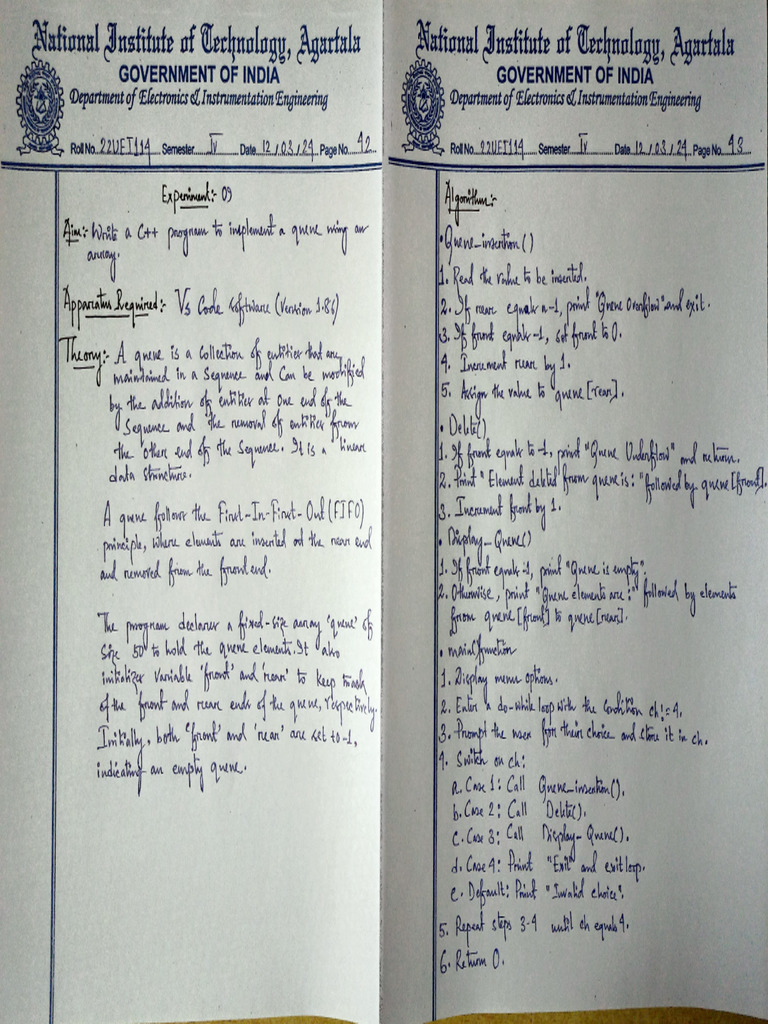 National Institute of Technology, Agartala
GOVERNMENT OF INDIA
Department of Electronics & Instrumentation Engineering
Roll No. 22UEI114 Semester IV Date 12/03/24 Page No. 42
Experiment:- 09
Aim:- Write a C++ program to implement a queue using an
array.
Apparatus Required:- Vs Code software (Version 1.86)
Theory:- A queue is a collection of entities that are
maintained in a sequence and can be modified
by the addition of entities at one end of the
sequence and the removal of entities from
the other end of the sequence. It is a linear
data structure.
A queue follows the First-In-First-Out (FIFO)
principle, where elements are inserted at the rear end
and removed from the front end.
The program declares a fixed-size array 'queue' of
size 50 to hold the queue elements. It also
initializes variable 'front' and 'rear' to keep track
of the front and rear ends of the queue, respectively.
Initially, both 'front' and 'rear' are set to -1,
indicating an empty queue.
National Institute of Technology, Agartala
GOVERNMENT OF INDIA
Department of Electronics & Instrumentation Engineering
Roll No. 22UEI114 Semester IV Date 12/03/24 Page No. 43
Algorithm:-
• Queue_insertion()
1. Read the value to be inserted.
2. If rear equals n-1, print "Queue Overflow" and exit.
3. If front equals -1, set front to 0.
4. Increment rear by 1.
5. Assign the value to queue [rear].
• Delete()
1. If front equals to -1, print "Queue Underflow" and return.
2. Print "Element deleted from queue is: " followed by queue [front].
3. Increment front by 1.
• Display_Queue()
1. If front equals -1, print "Queue is empty".
2. Otherwise, print "Queue elements are:" followed by elements
from queue [front] to queue [rear].
• main() function
1. Display menu options.
2. Enter a do-while loop with the condition ch!=4.
3. Prompt the user for their choice and store it in ch.
4. Switch on ch:
a. Case 1: Call Queue_insertion().
b. Case 2: Call Delete().
c. Case 3: Call Display_Queue().
d. Case 4: Print "Exit" and exit loop.
e. Default: Print "Invalid choice".
5. Repeat steps 3-4 until ch equals 4.
6. Return 0.